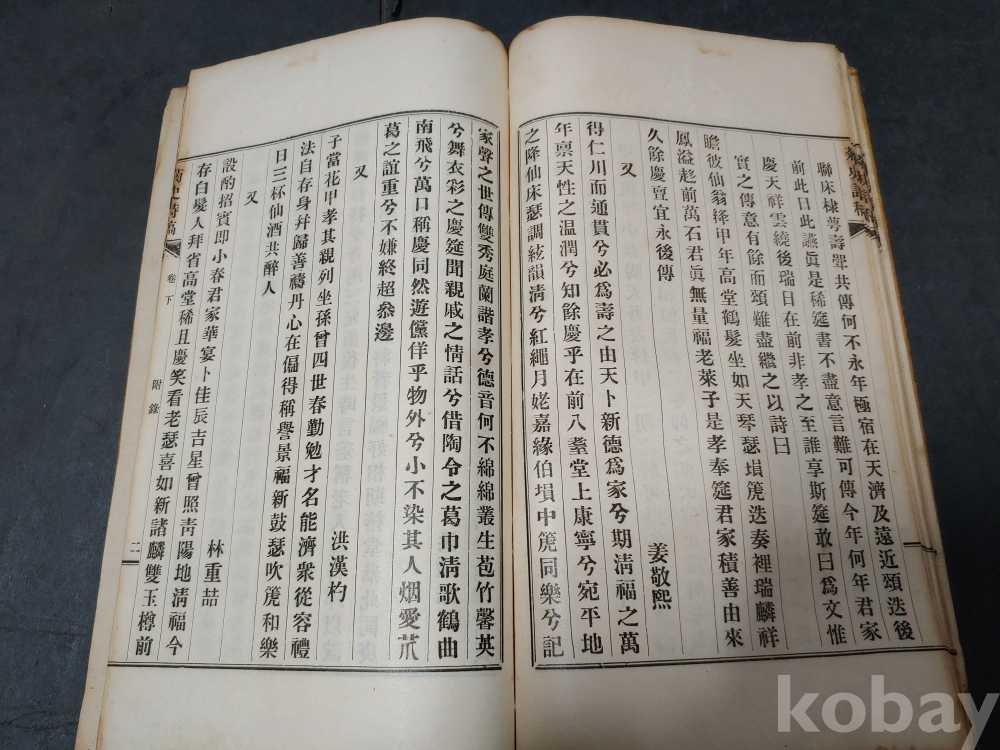 聯床棣萼壽單共傳何不永年極宿在天濟及遠近頌迭後
前此日此讌眞是稀筵書不盡意言難可傳今年何年君家
慶天祥雲繞後瑞日在前非孝之至誰享斯筵敢曰爲文惟
實之傳意有餘而頌難盡繼之以詩曰
瞻彼仙翁絳甲年高堂鶴髮坐如天琴瑟塤箎迭奏裡瑞麟祥
鳳溢趁前萬石君眞無量福老萊子是孝奉筵君家積善由來
久餘慶亶宜永後傳
姜敬熙
又
得仁川而通貫兮必爲壽之由天卜新德爲家兮期淸福之萬
年禀天性之温潤兮知餘慶乎在前八耋堂上康寧兮宛平地
之降仙床瑟調絃韻淸兮紅繩月姥嘉緣伯塤中箎同樂兮記
家聲之世傳雙秀庭蘭諧孝兮德音何不綿綿叢生苞竹馨英
兮舞衣彩之慶筵聞親戚之情話兮借陶令之葛巾淸歌鶴曲
南飛兮萬口稱慶同然遊儻佯乎物外兮小不染其人烟愛苽
葛之誼重兮不嫌終超叅邊
又
洪漢杓
子當花甲孝其親列坐孫曾四世春勤勉才名能濟衆從容禮
法自存身幷歸善禱丹心在偏得稱譽景福新鼓瑟吹箎和樂
日三杯仙酒共醉人
又
林重喆
設酌招賓即小春君家華宴卜佳辰吉星曾照靑陽地淸福今
存白髮人拜省高堂稀且慶笑看老瑟喜如新諸麟雙玉樽前
菊史詩稿
卷下
附錄
二
kobay